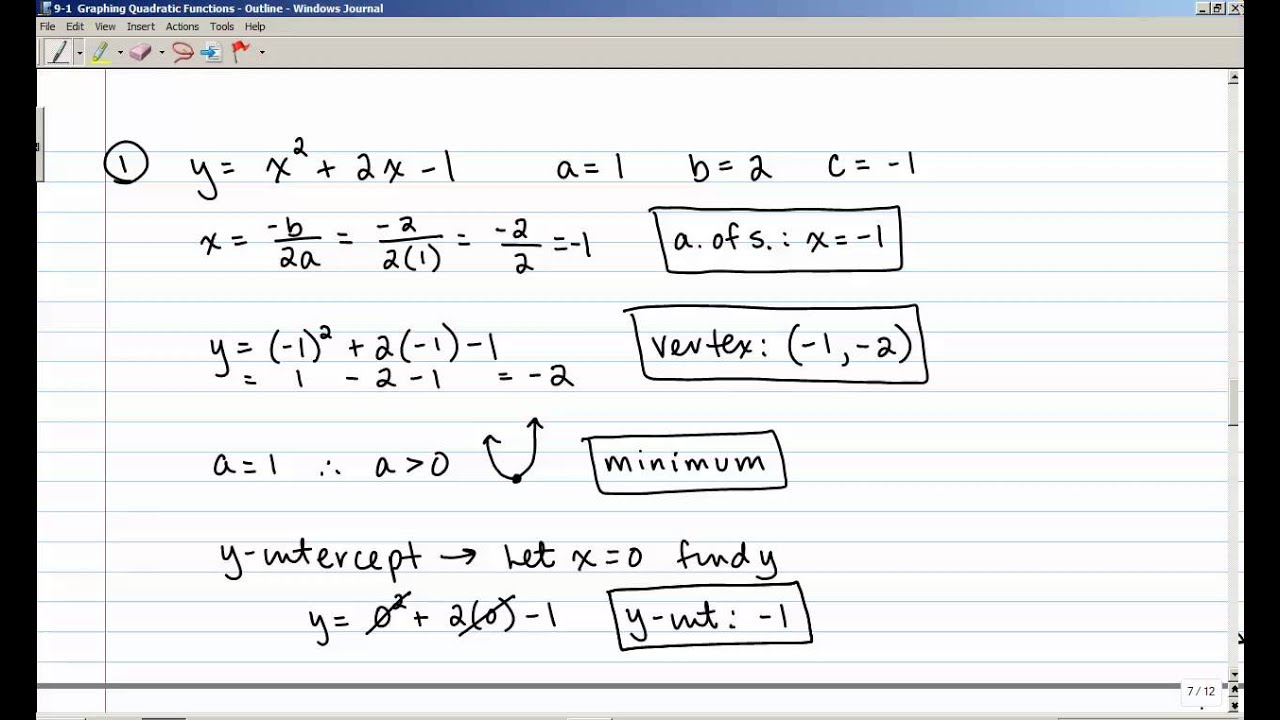 9-1 Graphing Quadratic Functions - Outline - Windows Journal
File Edit View Insert Actions Tools Help
① y = x² + 2x - 1 a = 1 b = 2 c = -1
x = -b/2a = -2/2(1) = -2/2 = -1 a. of s. : x = -1
y = (-1)² + 2(-1) - 1 vertex: (-1, -2)
= 1 - 2 - 1 = -2
a = 1 ∴ a > 0 minimum
y-intercept → Let x = 0 find y
y = 0² + 2(0) - 1 y-int: -1
7 / 12